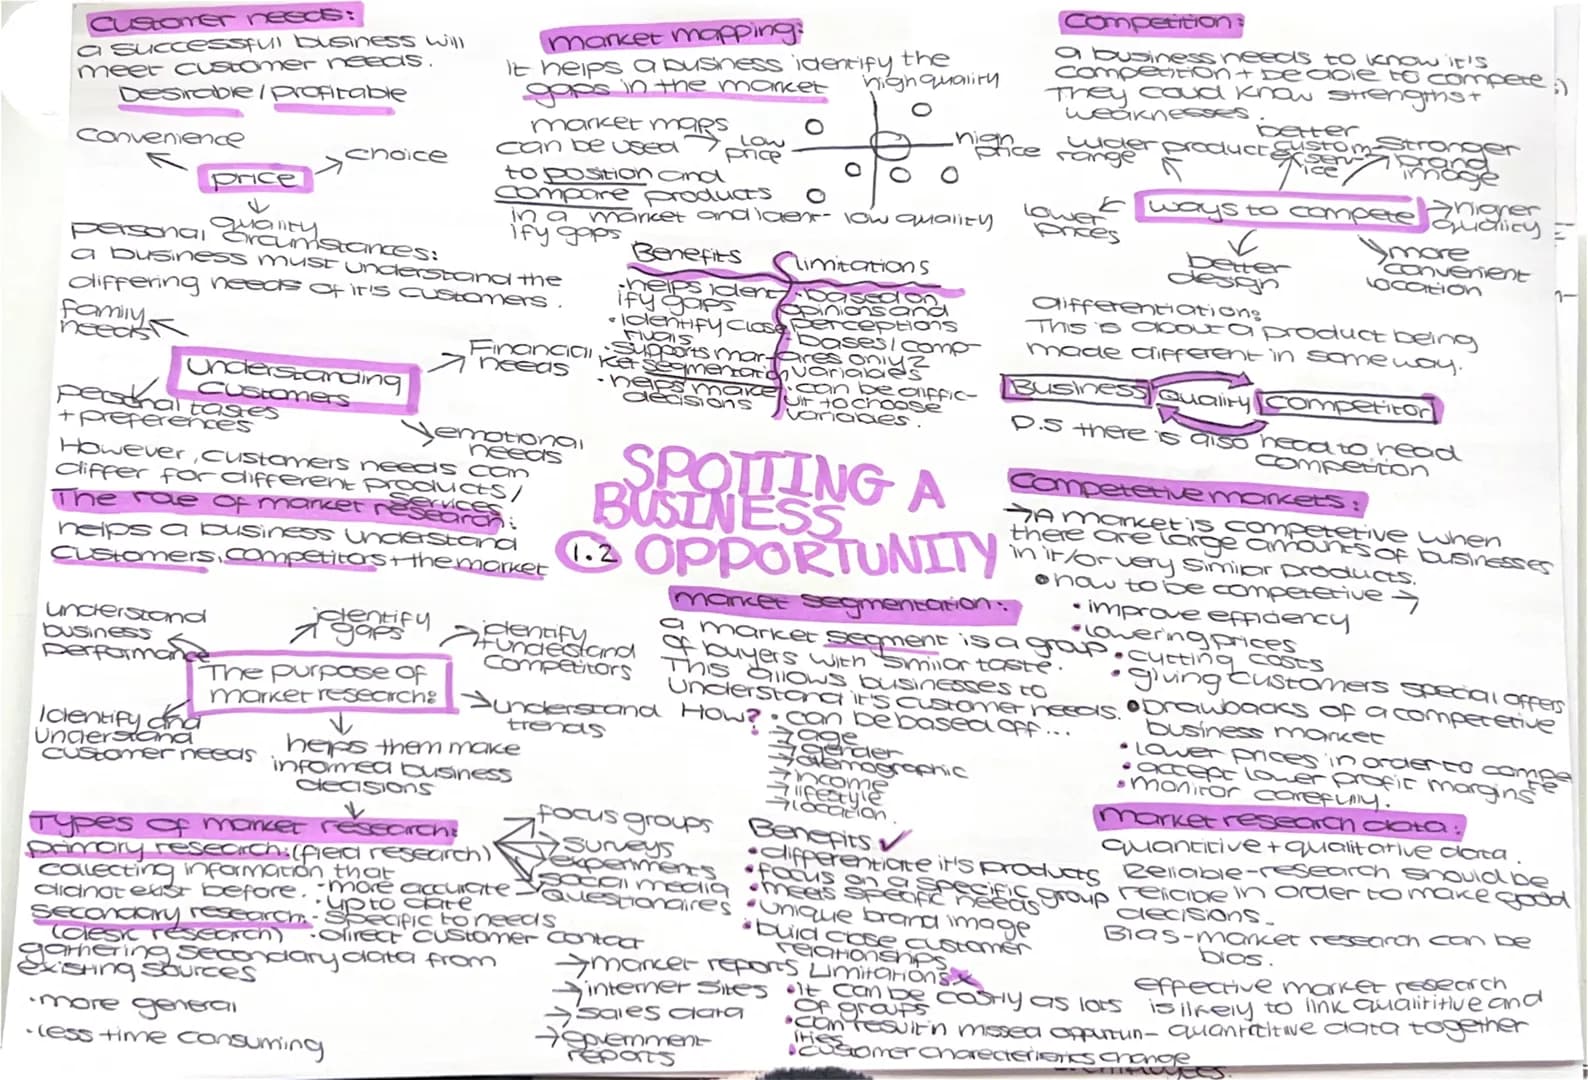 Customer needs:
a successful business will
meet customer needs.
Desirable / profitable
convenience
choice
price
quality
personal circumstances:
a business must understand the
differing needs of it's customers.
family
needs
Financial
needs
Understanding
customers
personal tastes
+ preferences
emotional
needs
However, customers needs can
differ for different products/
services
The role of market research:
helps a business understand
customers, competitors + the market
understand
business
performance
identify
gaps
identify
+ undestand
competitors
The purpose of
market research:
understand
trends
Identify and
understand
customer needs
helps them make
informed business
decisions
Types of market research:
primary research: (field research)
collecting information that
did not exist before.
focus groups
surveys
experiments
social media
questionaires
· more accurate
· up to date
· specific to needs
· direct customer contact
secondary research:
(desk research)
gathering secondary data from
existing sources
· more general
· less time consuming
→ market reports
→ internet sites
→ sales data
→ government
reports
market mapping:
It helps a business identify the
gaps in the market
market maps
can be used
to position and
compare products
in a market and ident-
ify gaps
high quality
low
price
high
price
low quality
Benefits
· helps ident-
ify gaps
· identify close
rivals
· supports mar-
ket segmentation
· helps make
decisions
limitations
· based on
opinions and
perceptions
· bases/comp-
ares only 2
variables
· can be diffic-
ult to choose
variables.
SPOTTING A
BUSINESS
1.2 OPPORTUNITY
market segmentation:
a market segment is a group
of buyers with similar taste.
This allows businesses to
understand it's customer needs.
How? · can be based off ...
→ age
→ gender
→ demographic
→ income
→ lifestyle
→ location.
Benefits ✓
· differentiate it's products
· focus on a specific group
· meets specific needs
· unique brand image
· build close customer
relationships
Limitations x
· It can be costly as lots
of groups
· can result in missed opportun-
ities
· customer characteristics change
Competition:
a business needs to know it's
competition + be able to compete :)
They could know strengths +
weaknesses.
wider product
range
better
custom
er serv-
ice
stronger
brand
image
lower
prices
ways to compete
higher
quality
better
design
more
convenient
location
differentiation:
This is about a product being
made different in some way.
Business
quality
competitor
P.S there is also need to head
competition
Competetive markets:
→ A market is competetive when
there are large amounts of businesses
in it/or very similar products.
• how to be competetive →
· improve efficiency
· lowering prices
· cutting costs
· giving customers special offers
• Drawbacks of a competetive
business market
· lower prices in order to compe
te
· accept lower profit margins
· monitor carefully.
market research data:
quantitive + qualitative data.
Reliable-research should be
reliable in order to make good
decisions.
Bias-market research can be
bias.
effective market research
is likely to link qualititive and
quantititive data together